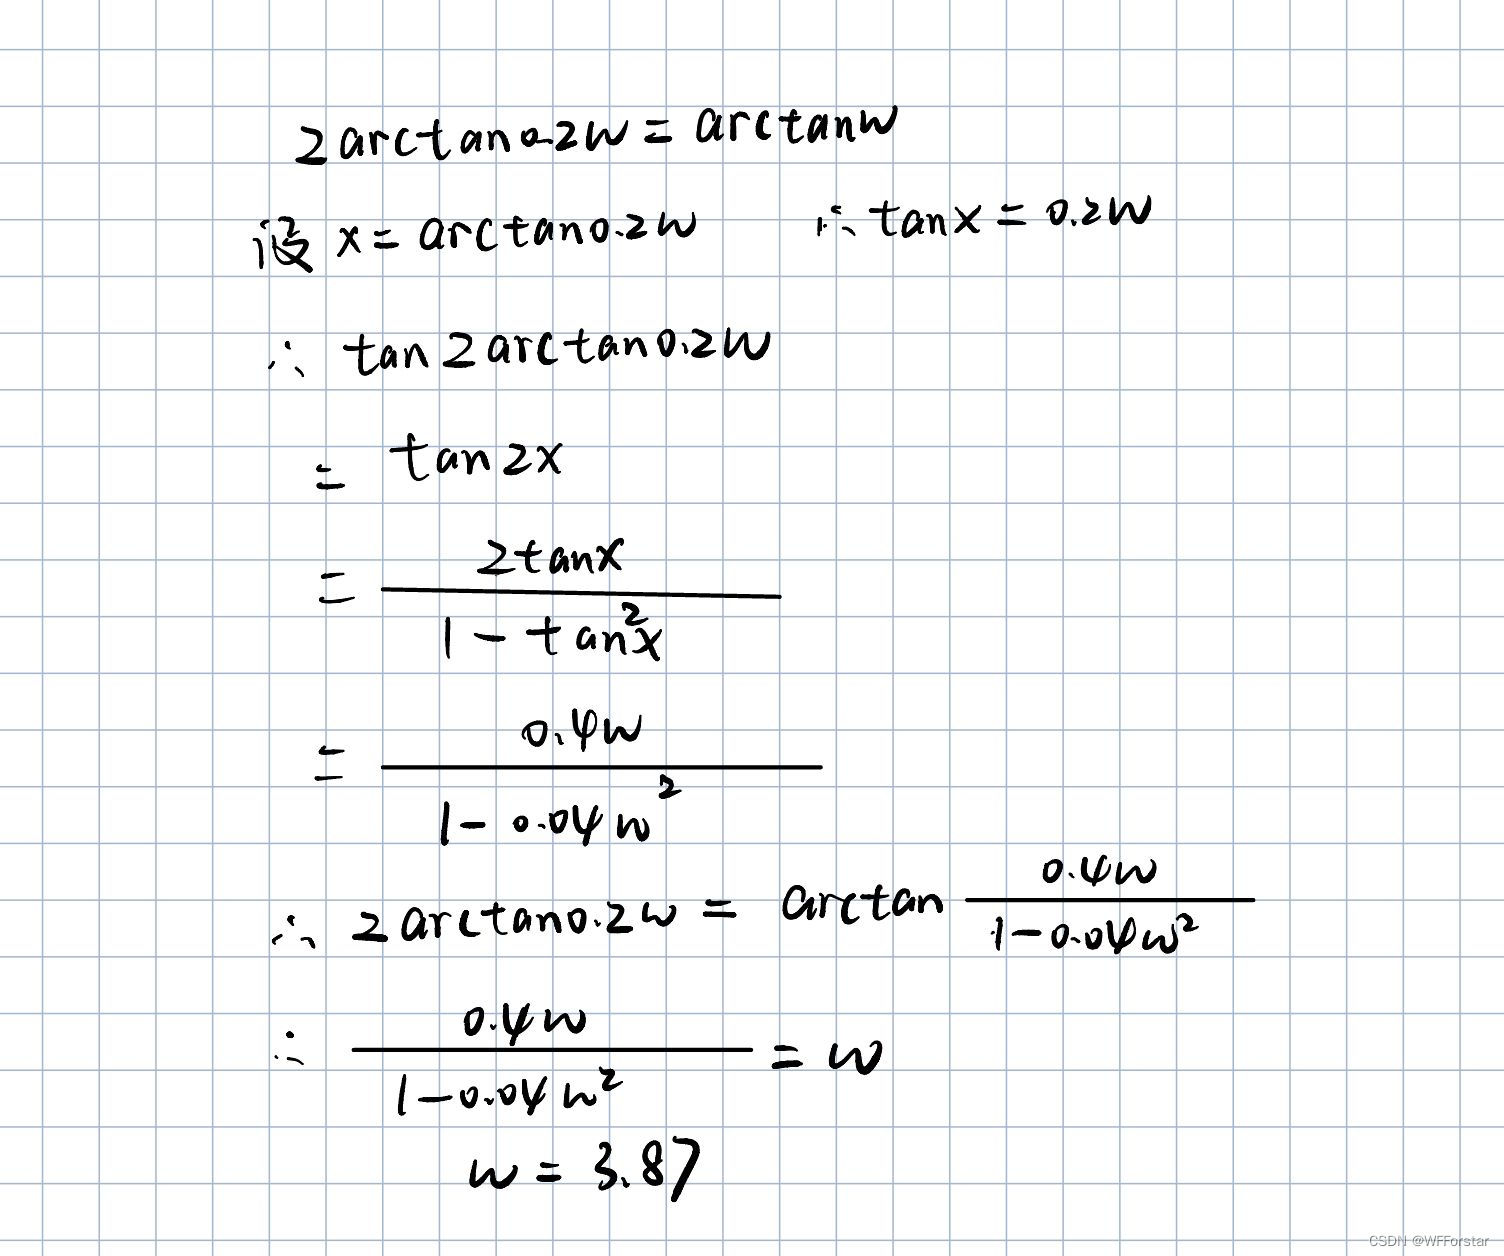 2arctan0.2w = arctanw
设 x = arctan0.2w ∴ tanx = 0.2w
∴ tan2arctan0.2w
= tan2x
= 2tanx / 1 - tan²x
= 0.4w / 1 - 0.04w²
∴ 2arctan0.2w = arctan 0.4w / 1 - 0.04w²
∴ 0.4w / 1 - 0.04w² = w
w = 3.87
CSDN @WFForstar